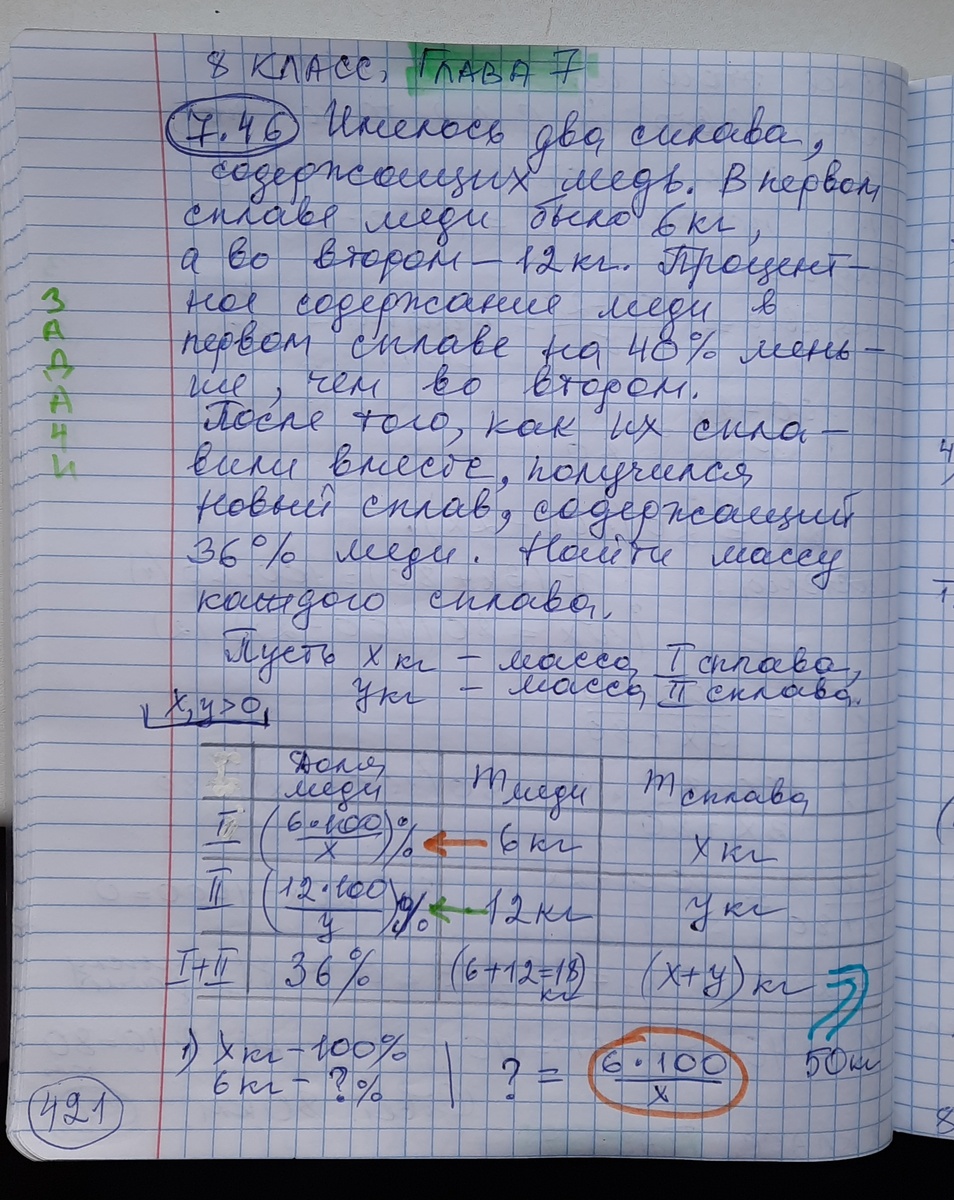 8 КЛАСС, ГЛАВА 7
7.46 Имелось два сплава,
содержащих медь. В первом
сплаве меди было 6 кг,
а во втором – 12 кг. Процент-
ное содержание меди в
первом сплаве на 40% мень-
ше, чем во втором.
После того, как их спла-
вили вместе, получился
новый сплав, содержащий
36% меди. Найти массу
каждого сплава.
ЗАДАЧИ
Пусть x кг – масса I сплава,
y кг – масса II сплава.
x, y > 0
Доля меди m меди m сплава
I (6·100/x)% ← 6 кг x кг
II (12·100/y)% ← 12 кг y кг
I+II 36% (6+12=18) кг (x+y) кг
1) x кг – 100%
6 кг – ? %
? = 6·100/x
50 кг
421